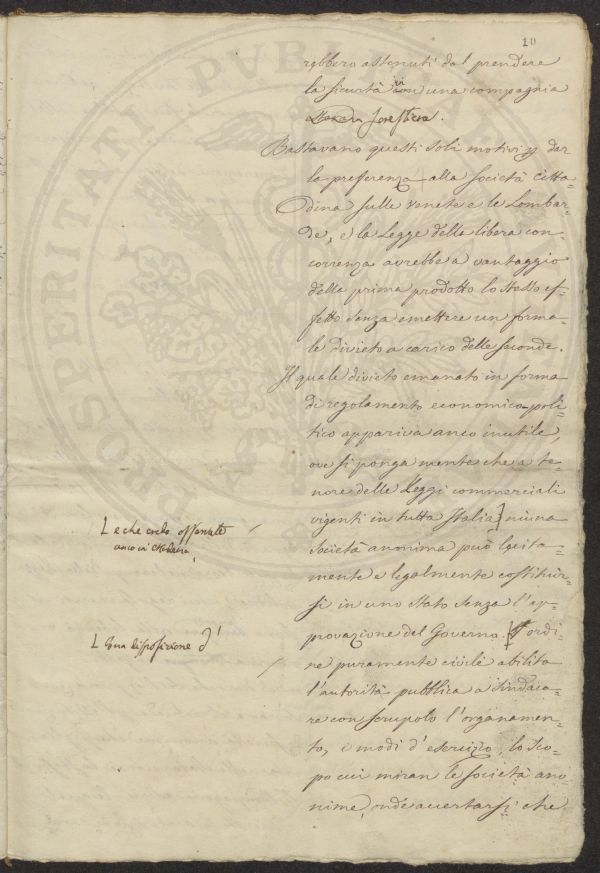 10
rebbero astenuti dal prendere
la sicurtà in con una compagnia
forestiera.
Bastavano questi soli motivi per dar
la preferenza alla società Citta=
dina sulle venete e le Lombar=
de, e la Legge della libera con=
correnza avrebbe a vantaggio
della prima prodotto lo stesso ef=
fetto senza emettere un forma=
le divieto a carico delle seconde.
Il quale divieto emanato in forma
di regolamento economico-poli=
tico appariva anco inutile,
ove si ponga mente che a te=
nore delle Leggi commerciali
vigenti in tutta Italia] niuna
società anonima può lecita=
mente e legalmente costituir=
si in uno stato senza l'ap=
provazione del Governo. ordi=
ne puramente civile abilita
l'autorità pubblica a sindaca=
re con scrupolo l'organamen=
to, i modi d'esercizio, lo sco=
po cui miran le società ano=
nime, onde accertarsi che
L e che credo osservate
anco in Modena,
L Una disposizione d'
PROSPERITATI PUBLICAE